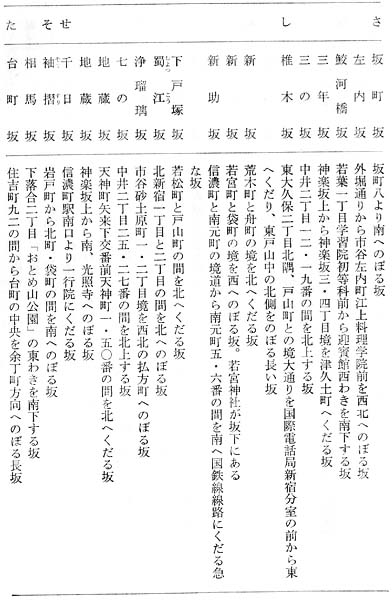 さ
坂町坂　坂町八より南へのぼる坂
左内坂　外堀通りから市谷左内町江上料理学院前を西北へのぼる坂
鮫河橋坂　若葉一丁目学習院初等科前から迎賓館西わきを南下する坂
三年坂　神楽坂上から神楽坂三・四丁目境を津久土町へくだる坂
三の坂　中井二丁目一二・一九番の間を北上する坂
し
椎木坂　東大久保二丁目北隅、戸山町との境大通りを国際電話局新宿分室の前から東
へくだり、東戸山中の北側をのぼる長い坂
新坂　荒木町と舟町の境を北へくだる坂
新坂　若宮町と袋町の境を西へのぼる坂。若宮神社が坂下にある
新助坂　信濃町と南元町の境道から南元町五・六番の間を南へ国鉄線線路にくだる急
な坂
下戸塚坂　若松町と戸山町の間を北へくだる坂
蜀江坂　北新宿一丁目と二丁目の間を北へのぼる坂
浄瑠璃坂　市谷砂土原町一・二丁目境を西北の払方町へのぼる坂
七の坂　中井二丁目二五・二七番の間を北上する坂
地蔵坂　天神町矢来下交番前天神町一・五〇番の間を北へくだる坂
地蔵坂　神楽坂上から南、光照寺へのぼる坂
せ
千日坂　信濃町駅南口より一行院にくだる坂
そ
袖摺坂　岩戸町から北町・袋町の間を南へのぼる坂
相馬坂　下落合二丁目「おとめ山公園」の東わきを南下する坂
た
台町坂　住吉町九二の間から台町の中央を余丁町方向へのぼる長坂